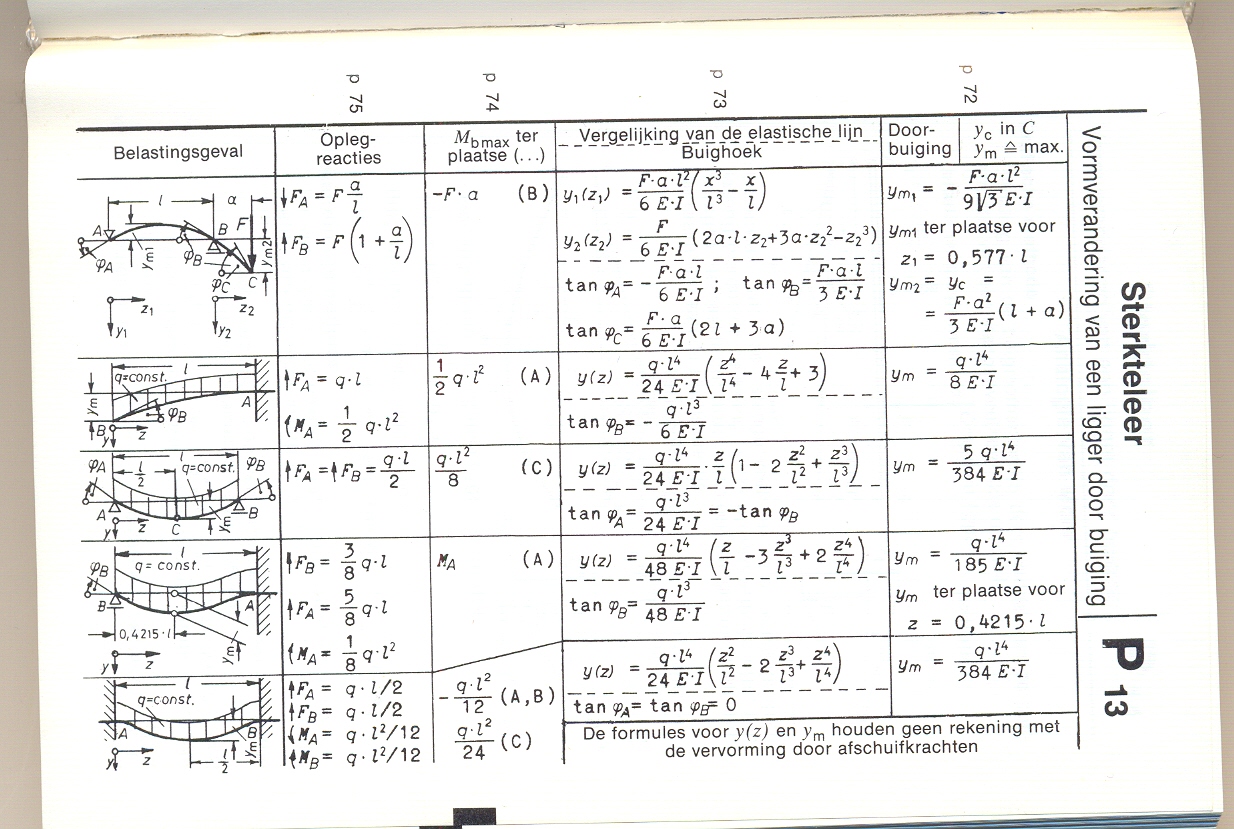 p 75
p 74
p 73
p 72
Sterkteleer
Vormverandering van een ligger door buiging
P 13
Belastingsgeval
Opleg-
reacties
M_b max ter
plaatse (...)
Vergelijking van de elastische lijn
Buighoek
Door-
buiging
y_c in C
y_m ≙ max.
l a
A B F
y_m1 y_m2
φ_A φ_B φ_C C
z_1 z_2
y_1 y_2
↓F_A = F a/l
↑F_B = F (1 + a/l)
-F· a (B)
y_1(z_1) = F·a·l²/6 E·I (x³/l³ - x/l)
y_2(z_2) = F/6 E·I (2a·l·z_2+3a·z_2²-z_2³)
tan φ_A= - F·a·l/6 E·I ; tan φ_B= F·a·l/3 E·I
tan φ_C= F·a/6 E·I (2l + 3·a)
y_m1 = - F·a·l²/9√3 E·I
y_m1 ter plaatse voor
z_1 = 0,577·l
y_m2 = y_c =
= F·a²/3 E·I (l + a)
l
q=const.
y_m A
φ_B
B z
y
↑F_A = q·l
(M_A = 1/2 q·l²
1/2 q·l² (A)
y(z) = q·l⁴/24 E·I (z⁴/l⁴ - 4 z/l + 3)
tan φ_B= - q·l³/6 E·I
y_m = q·l⁴/8 E·I
φ_A l φ_B
l/2 q=const.
A B
y z C y_m
↑F_A =↑F_B= q·l/2
q·l²/8 (C)
y(z) = q·l⁴/24 E·I · z/l (1- 2 z²/l² + z³/l³)
tan φ_A= q·l³/24 E·I = -tan φ_B
y_m = 5 q·l⁴/384 E·I
l
q = const.
φ_B
B A
0,4215·l
y_m
y z
↑F_B = 3/8 q·l
↑F_A = 5/8 q·l
(M_A = 1/8 q·l²
M_A (A)
y(z) = q·l⁴/48 E·I (z/l -3 z³/l³ + 2 z⁴/l⁴)
tan φ_B= q·l³/48 E·I
y_m = q·l⁴/185 E·I
y_m ter plaatse voor
z = 0,4215·l
l
q=const.
A B
y_m
y z l/2
↑F_A = q·l/2
↑F_B = q·l/2
(M_A = q·l²/12
(M_B = q·l²/12
- q·l²/12 (A,B)
q·l²/24 (C)
y(z) = q·l⁴/24 E·I (z²/l² - 2 z³/l³ + z⁴/l⁴)
tan φ_A= tan φ_B= 0
y_m = q·l⁴/384 E·I
De formules voor y(z) en y_m houden geen rekening met
de vervorming door afschuifkrachten